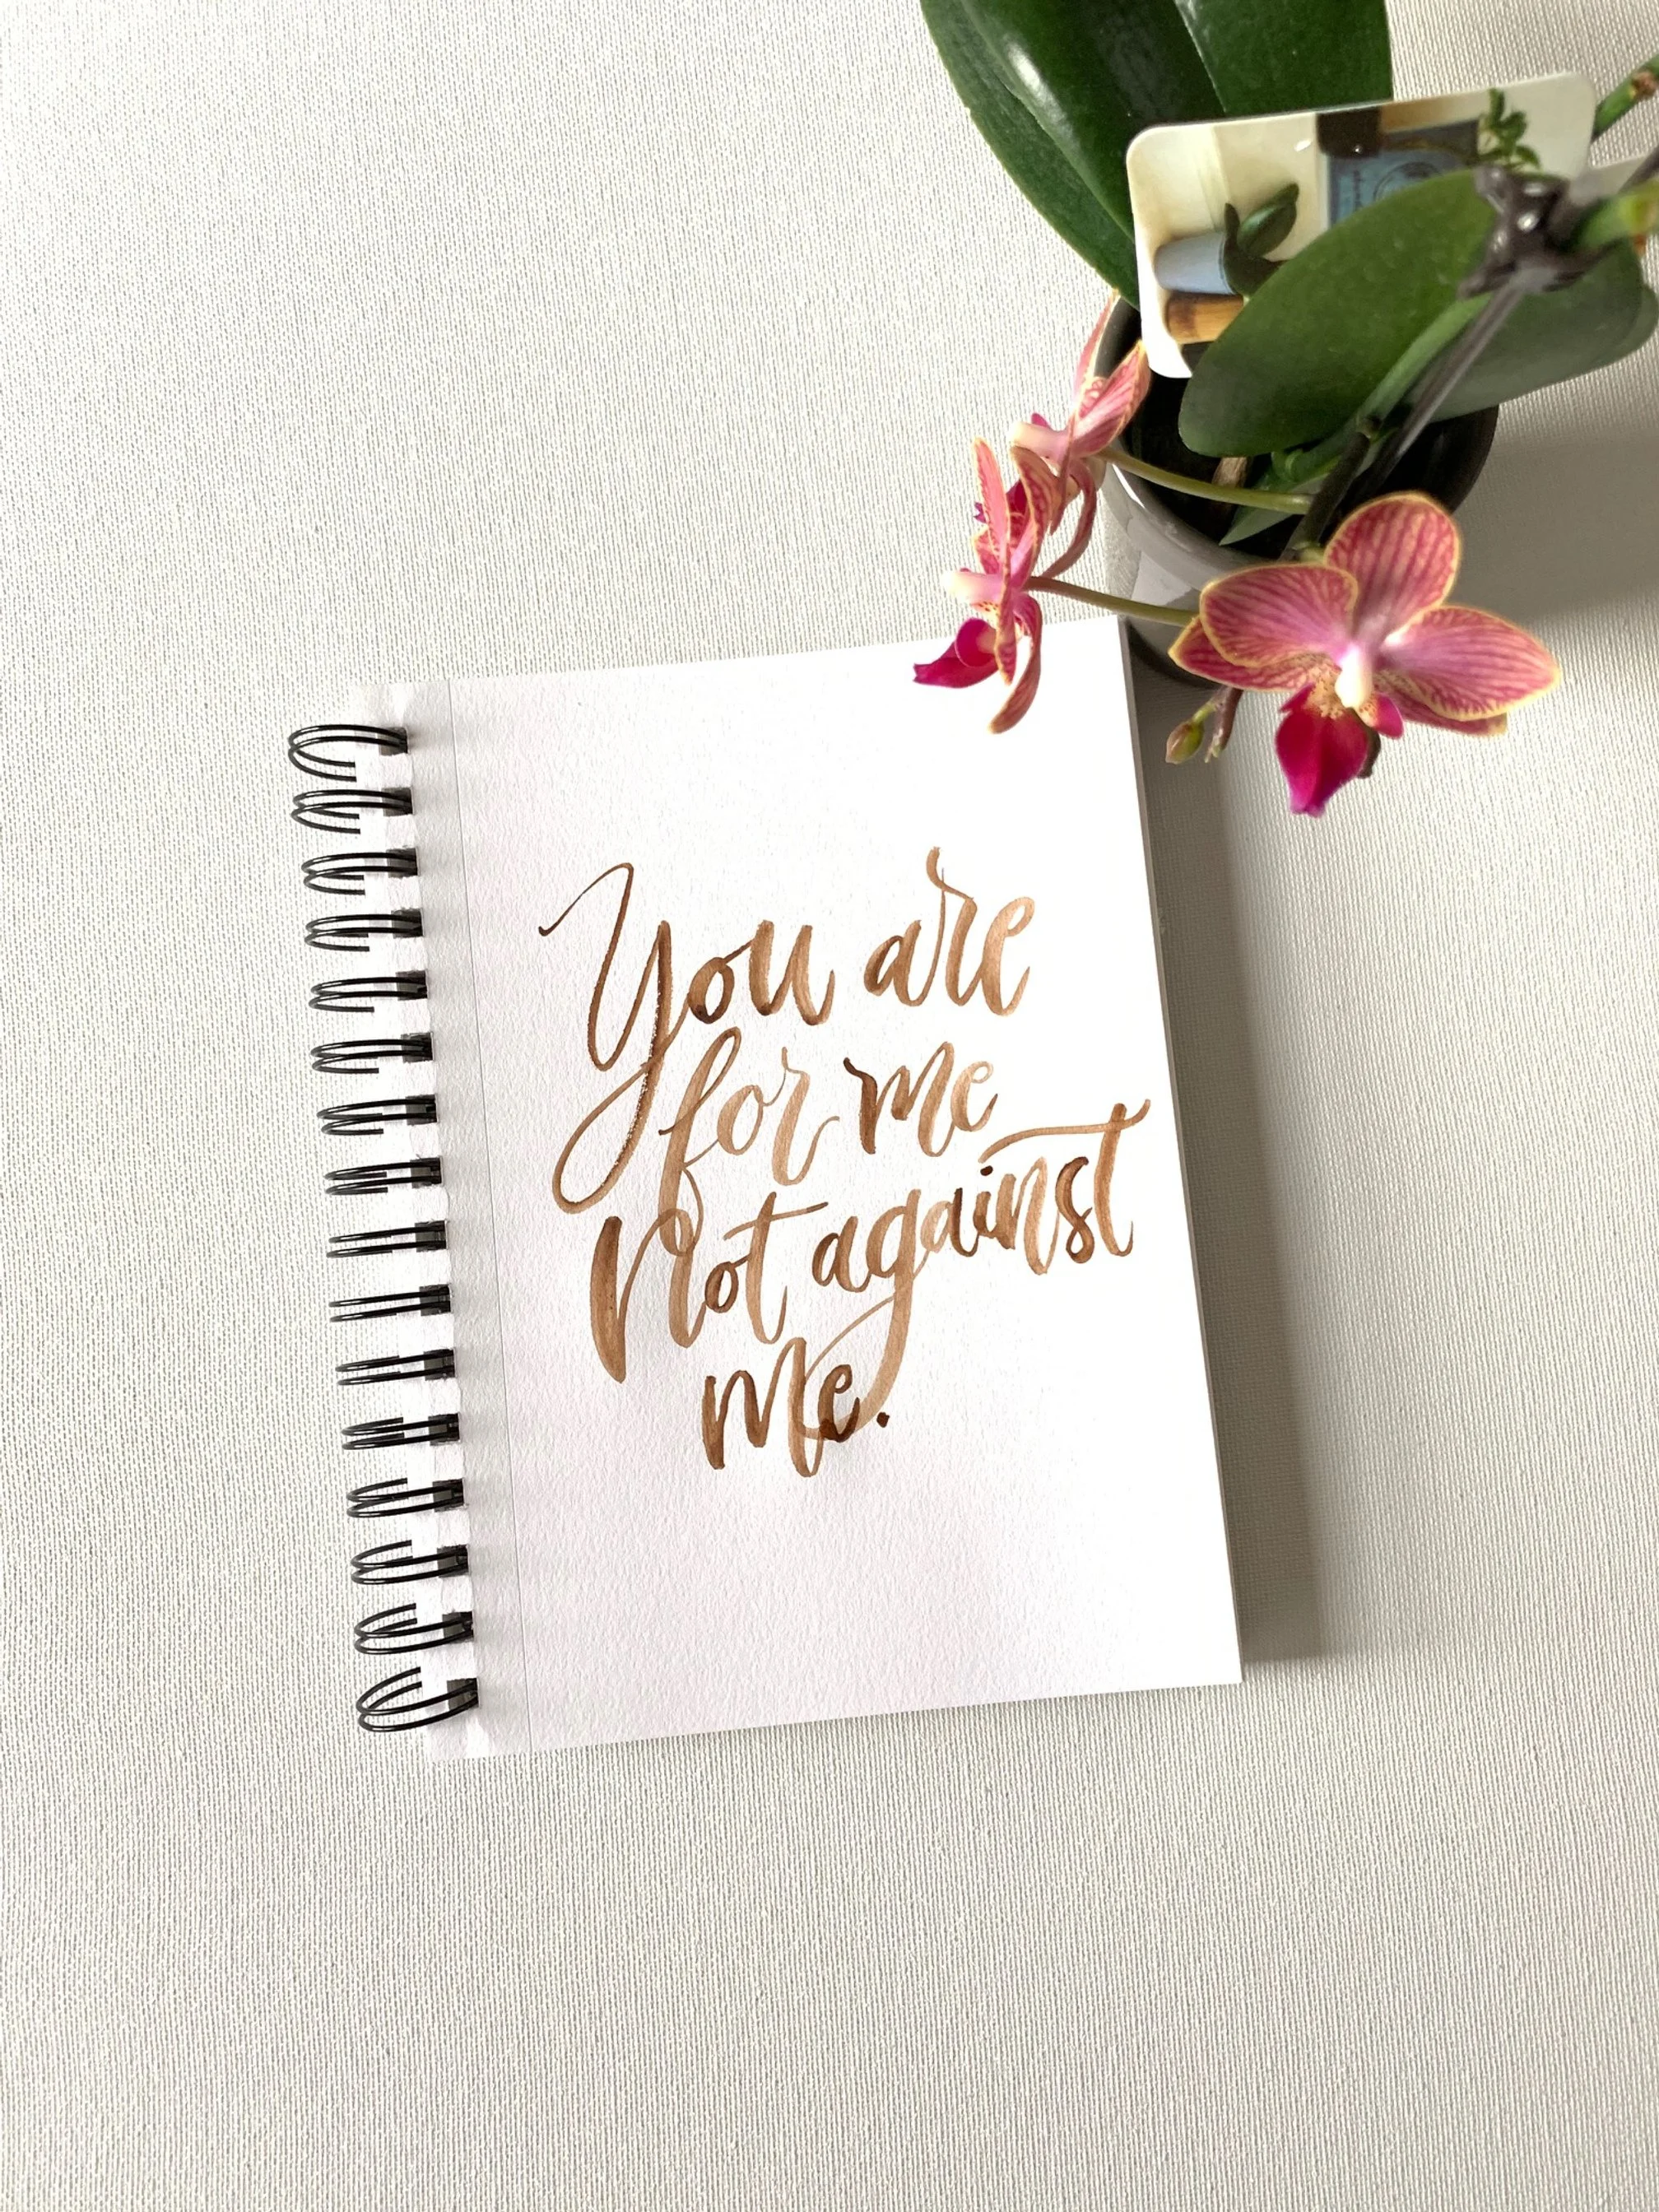 You are
for me
Not against
me.